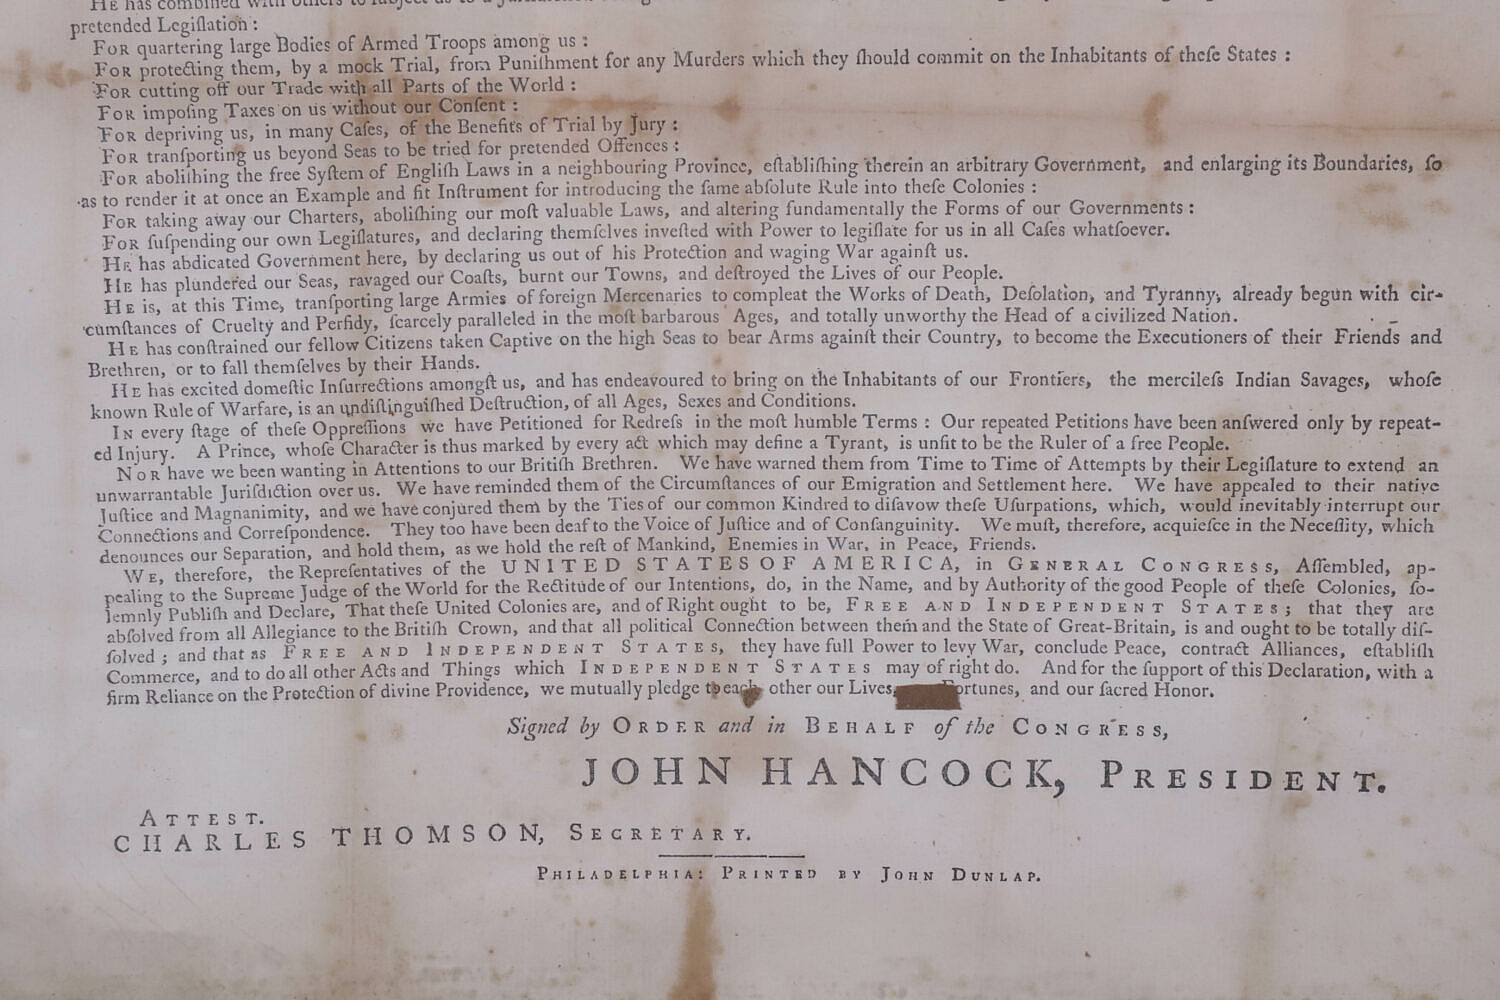 He has combined with others to subject us to a
pretended Legiſlation :
For quartering large Bodies of Armed Troops among us :
For protecting them, by a mock Trial, from Puniſhment for any Murders which they ſhould commit on the Inhabitants of theſe States :
For cutting off our Trade with all Parts of the World :
For impoſing Taxes on us without our Conſent :
For depriving us, in many Caſes, of the Benefits of Trial by Jury :
For tranſporting us beyond Seas to be tried for pretended Offences :
For aboliſhing the free Syſtem of Engliſh Laws in a neighbouring Province, eſtabliſhing therein an arbitrary Government, and enlarging its Boundaries, ſo
as to render it at once an Example and fit Inſtrument for introducing the ſame abſolute Rule into theſe Colonies :
For taking away our Charters, aboliſhing our moſt valuable Laws, and altering fundamentally the Forms of our Governments :
For ſuſpending our own Legiſlatures, and declaring themſelves inveſted with Power to legiſlate for us in all Caſes whatſoever.
He has abdicated Government here, by declaring us out of his Protection and waging War againſt us.
He has plundered our Seas, ravaged our Coaſts, burnt our Towns, and deſtroyed the Lives of our People.
He is, at this Time, tranſporting large Armies of foreign Mercenaries to compleat the Works of Death, Deſolation, and Tyranny, already begun with cir-
cumſtances of Cruelty and Perfidy, ſcarcely paralleled in the moſt barbarous Ages, and totally unworthy the Head of a civilized Nation.
He has conſtrained our fellow Citizens taken Captive on the high Seas to bear Arms againſt their Country, to become the Executioners of their Friends and
Brethren, or to fall themſelves by their Hands.
He has excited domeſtic Inſurrections amongſt us, and has endeavoured to bring on the Inhabitants of our Frontiers, the mercileſs Indian Savages, whoſe
known Rule of Warfare, is an undiſtinguiſhed Deſtruction, of all Ages, Sexes and Conditions.
In every ſtage of theſe Oppreſſions we have Petitioned for Redreſs in the moſt humble Terms : Our repeated Petitions have been anſwered only by repeat-
ed Injury. A Prince, whoſe Character is thus marked by every act which may define a Tyrant, is unfit to be the Ruler of a free People.
Nor have we been wanting in Attentions to our Britiſh Brethren. We have warned them from Time to Time of Attempts by their Legiſlature to extend an
unwarrantable Juriſdiction over us. We have reminded them of the Circumſtances of our Emigration and Settlement here. We have appealed to their native
Juſtice and Magnanimity, and we have conjured them by the Ties of our common Kindred to diſavow theſe Uſurpations, which, would inevitably interrupt our
Connections and Correſpondence. They too have been deaf to the Voice of Juſtice and of Conſanguinity. We muſt, therefore, acquieſce in the Neceſſity, which
denounces our Separation, and hold them, as we hold the reſt of Mankind, Enemies in War, in Peace, Friends.
We, therefore, the Repreſentatives of the UNITED STATES OF AMERICA, in General Congress, Aſſembled, ap-
pealing to the Supreme Judge of the World for the Rectitude of our Intentions, do, in the Name, and by Authority of the good People of theſe Colonies, ſo-
lemnly Publiſh and Declare, That theſe United Colonies are, and of Right ought to be, Free and Independent States; that they are
abſolved from all Allegiance to the Britiſh Crown, and that all political Connection between them and the State of Great-Britain, is and ought to be totally diſ-
ſolved ; and that as Free and Independent States, they have full Power to levy War, conclude Peace, contract Alliances, eſtabliſh
Commerce, and to do all other Acts and Things which Independent States may of right do. And for the ſupport of this Declaration, with a
firm Reliance on the Protection of divine Providence, we mutually pledge to each other our Lives, Fortunes, and our ſacred Honor.
Signed by Order and in Behalf of the Congress,
JOHN HANCOCK, President.
Attest.
CHARLES THOMSON, Secretary.
Philadelphia: Printed by John Dunlap.